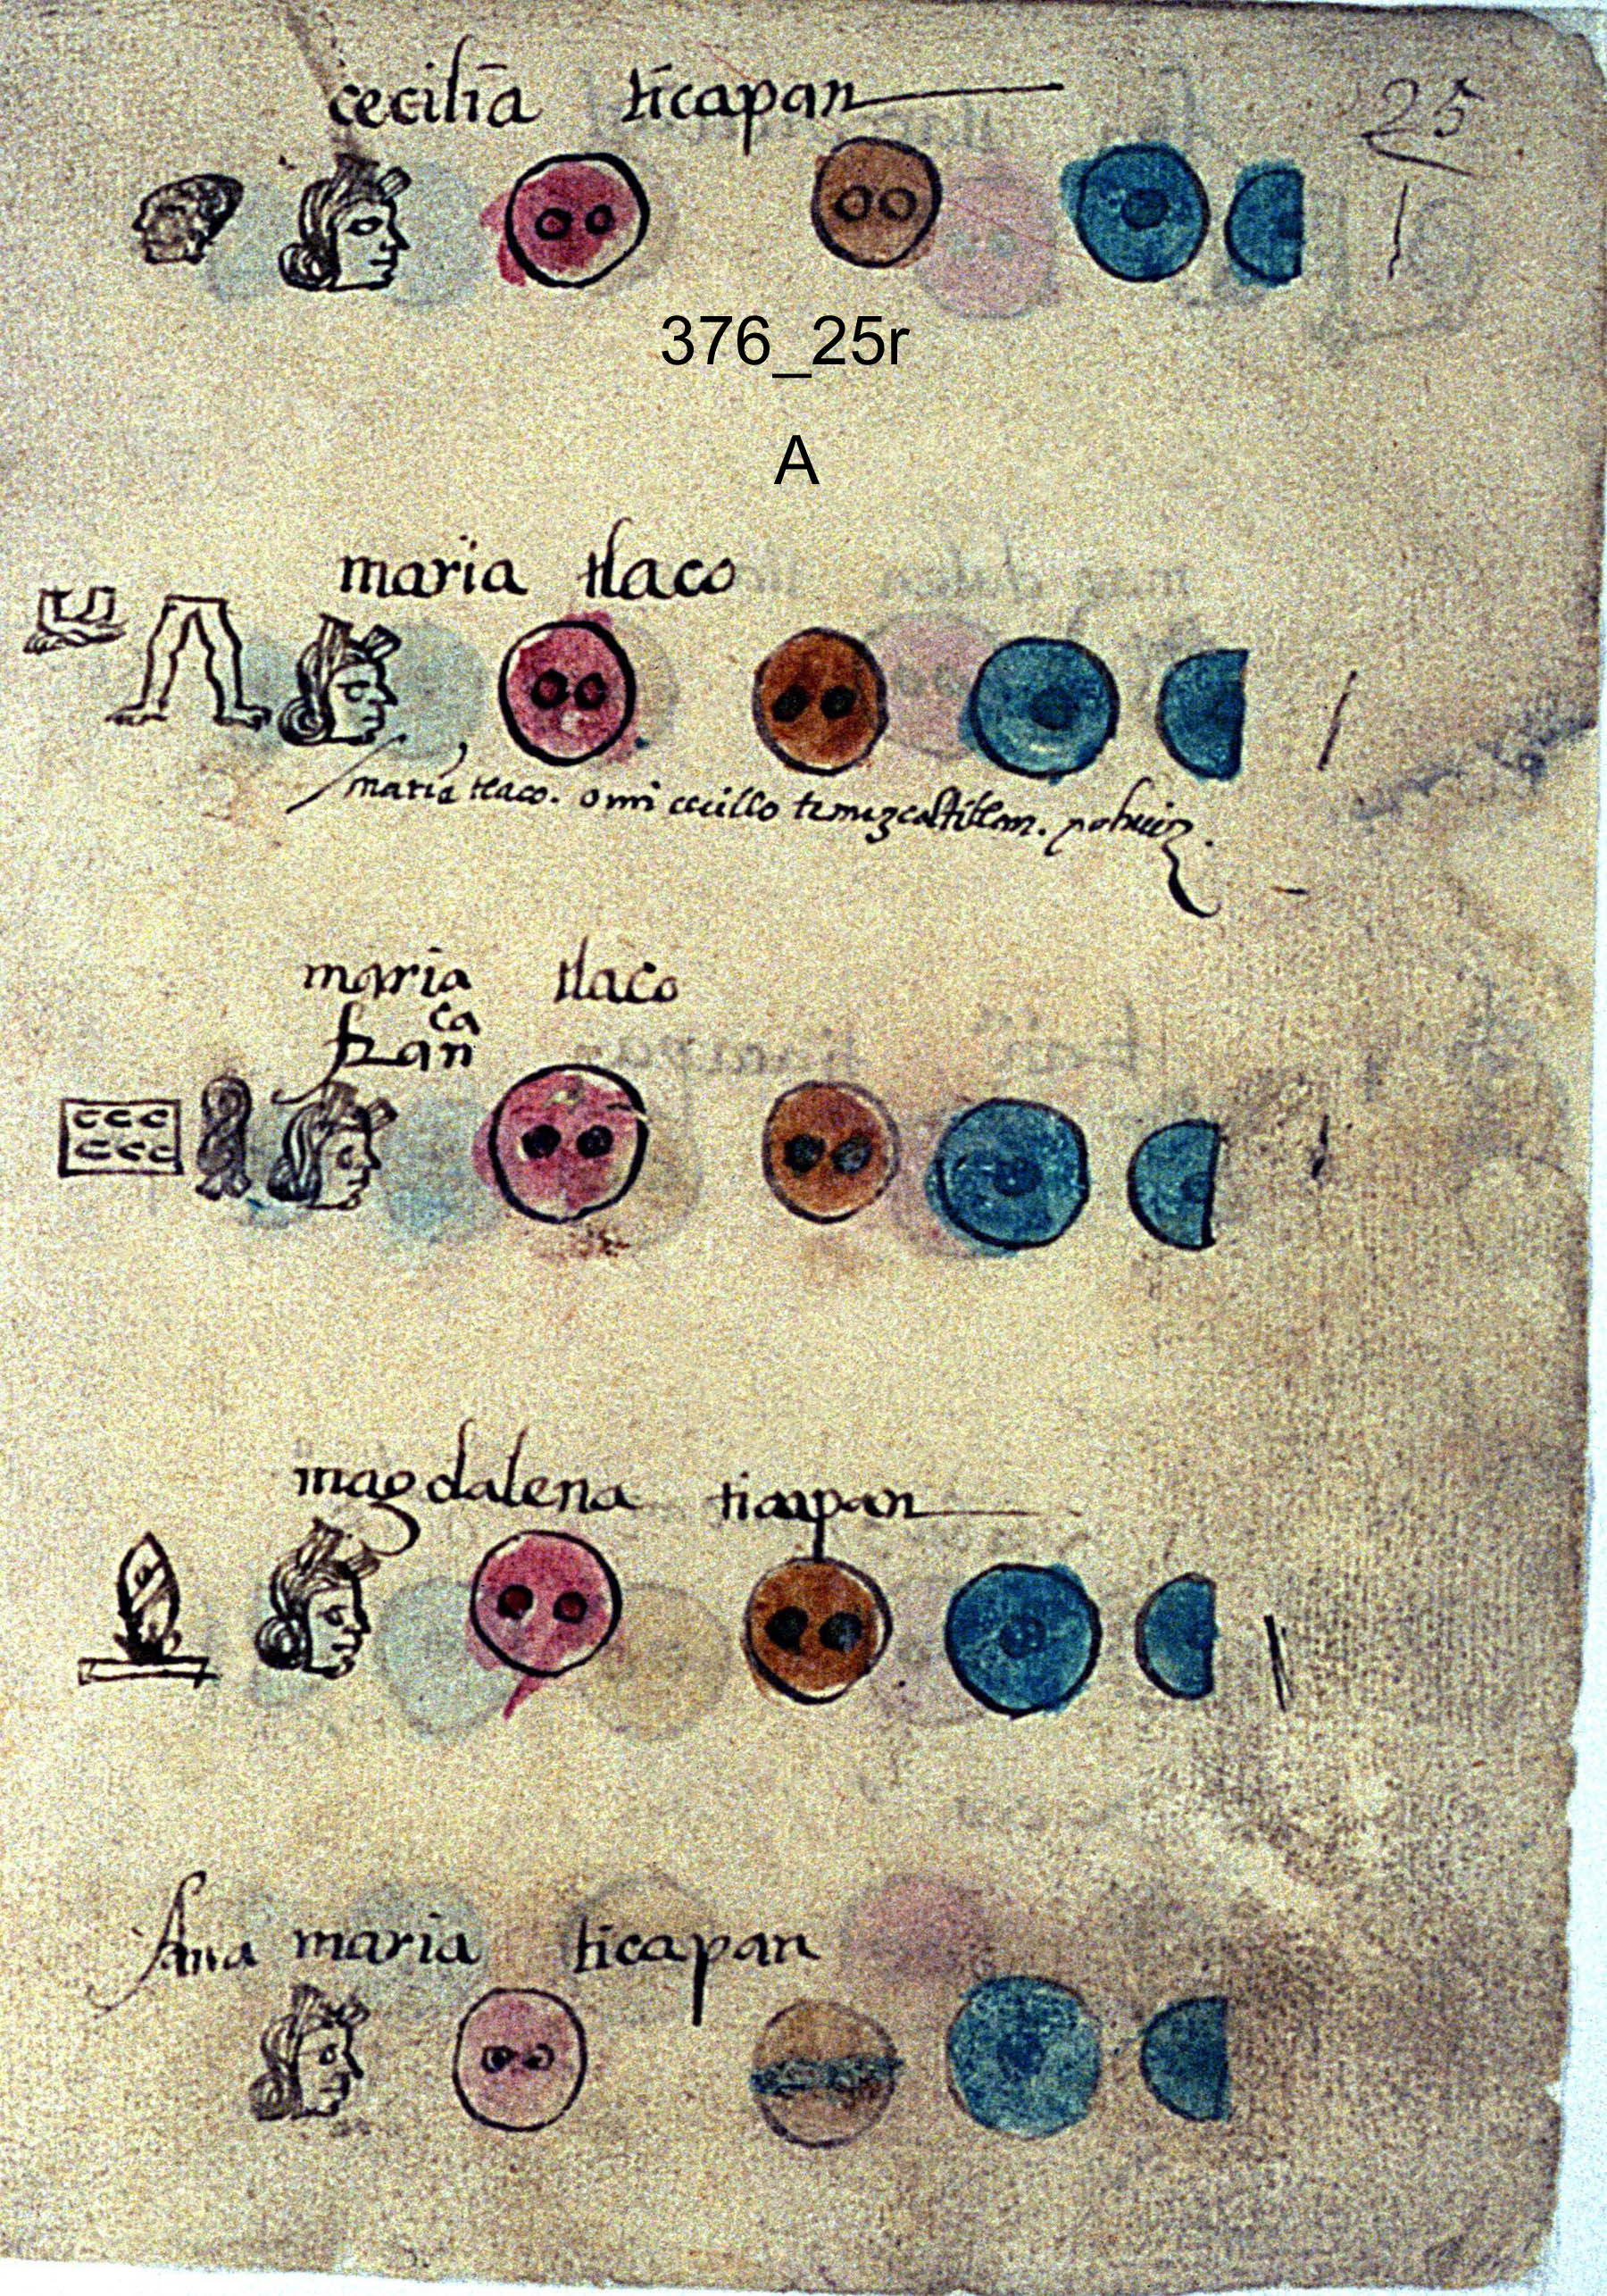 cecilia ticapan
25
376_25r
A
maria tlaco
maria tlaco. omi ccuillo temazcaltitlan. pohuiz.
maria tlaco
franca
magdalena ticapan
Ana maria ticapan